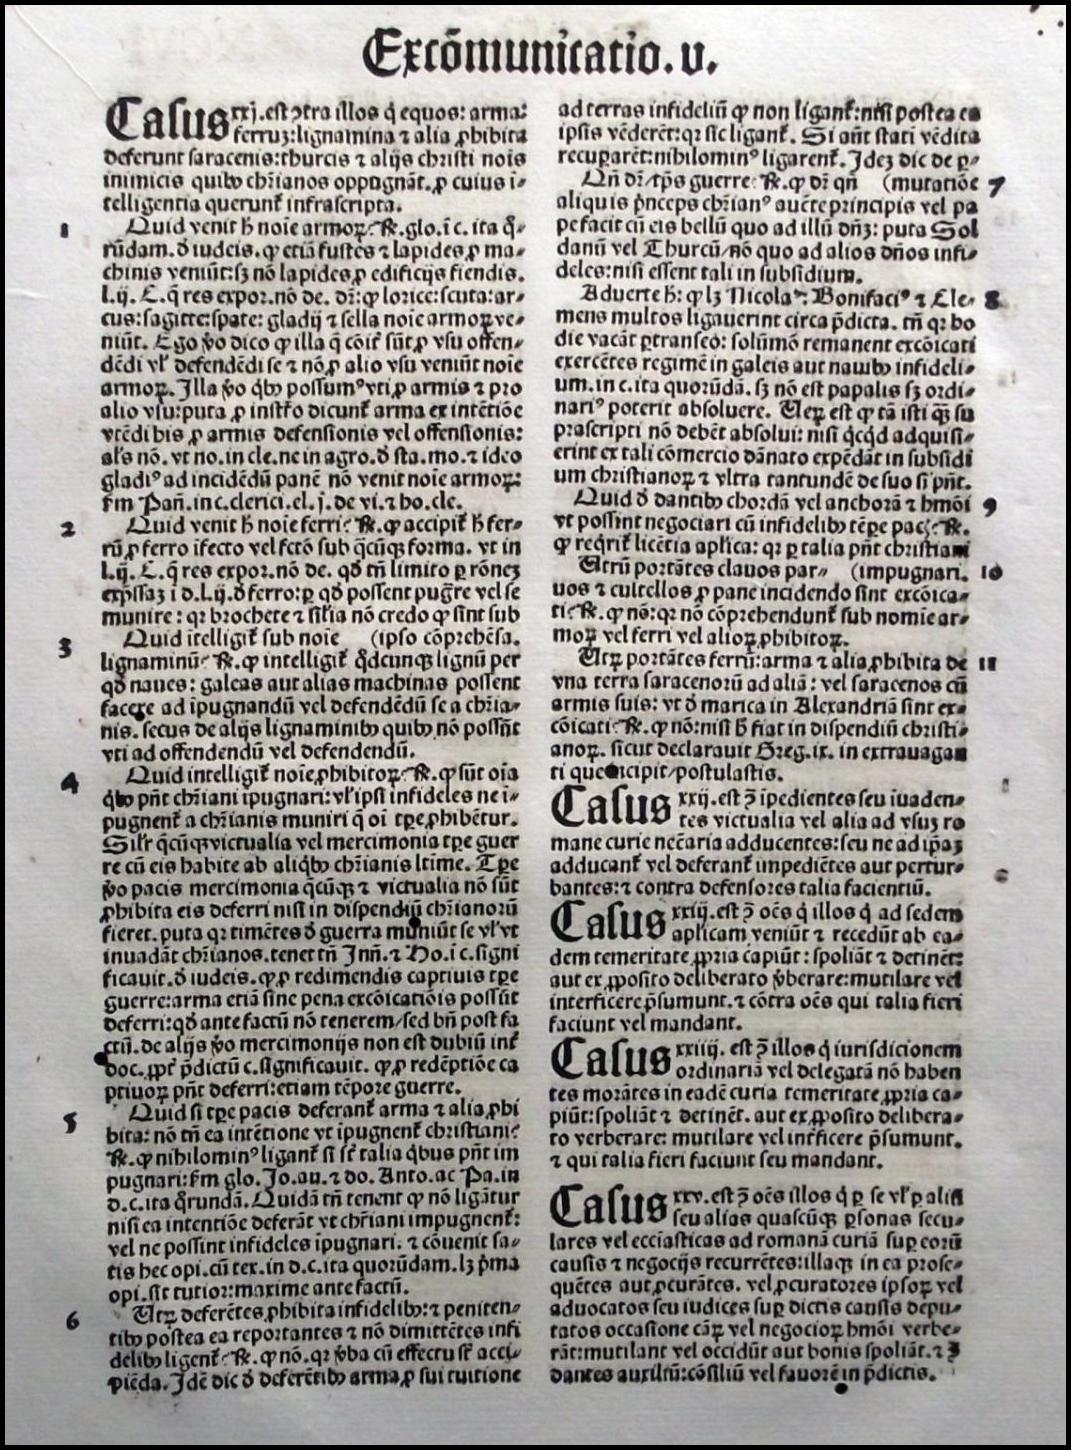 Excōmunicatio.v.
Casus xxj.est ↄtra illos q̇ equos: arma:
ferruʒ:lignamina ⁊ alia ꝓhibita
deferunt saracenis:thurcis ⁊ alijs christi nois
inimicis quibꝰ chr̄ianos oppugnāt.ꝓ cuius i-
telligentia querunt̄ infrascripta.
1 Quid venit h̄ noīe armoꝝ? ℞.glo.ī c. ita q̄-
rūdam.đ iudeis.ꝙ etiā fustes ⁊ lapides,ꝓ ma-
chinis veniūt:sʒ nō lapides,ꝓ edificijs fiendis.
l.ij. C.q̄ res expor.nō de. dr̄:ꝙ lorice:scuta:ar-
cus:sagitte:spate: gladij ⁊ sella noīe armoꝝ ve-
niūt. Ego v̊o dico ꝙ illa q̄ cōit̄ sūt,ꝓ vsu offen-
dēdi vl̄ defendēdi se ⁊ nō,ꝓ alio vsu veniūt noīe
armoꝝ. Illa v̊o q̇bꝰ possumꝰ vti,ꝓ armis ⁊ pro
alio vsu:puta ,ꝓ instr̄o dicunt̄ arma ex intētiōe
vtēdi his ,ꝓ armis defensionis vel offensionis:
al̄s nō. vt no.in cle.ne in agro.đ sta.mo.⁊ ideo
gladiꝰ ad incidēdū panē nō venit noīe armoꝝ:
fm̄ Pań.in c.clerici.el.j.de vi.⁊ ho.cle.
2 Quid venit h̄ noīe ferri? ℞.ꝙ accipit̄ h̄ fer-
rū,ꝓ ferro īfecto vel fctō sub q̄cūqꝫ forma. vt in
l.ij. C.q̄ res expor.nō de. qđ tn̄ limito ꝑ rōneʒ
exp̄ssaʒ ī d.l.ij.đ ferro:ꝑ qđ possent pug̃re vel se
munire: qꝛ brochete ⁊ sil̄ia nō credo ꝙ sint sub
3 Quid ītelligit̄ sub noīe (ipso cōprehēsa.
lignaminū? ℞.ꝙ intelligit̄ q̄dcunqꝫ lignū per
qđ naues: galeas aut alias machinas possent
facere ad īpugnandū vel defendēdū se a chr̄ia-
nis. secus de alijs lignaminibꝰ quibꝰ nō possn̄t
vti ad offendendū vel defendendū.
4 Quid intelligit̄ noīe,ꝓhibitoꝝ? ℞.ꝙ sūt oīa
q̇bꝰ pn̄t chr̄iani īpugnari:vl̄ ipsi infideles ne ī-
pugnent̄ a chr̄ianis muniri q̄ oī tꝑe,ꝓhibētur.
Sil̄r q̄cūqꝫ victualia vel mercimonia tꝑe guer
re cū eis habite ab aliq̇bꝰ chr̄ianis l̄time. Tꝑe
v̊o pacis mercimonia q̄cūqꝫ ⁊ victualia nō sūt
,ꝓhibita eis deferri nisi in dispendiū chr̄ianorū
fieret. puta qꝛ timētes đ guerra muniūt se vl̄ vt
inuadāt chr̄ianos.tenet tn̄ Inn̄.⁊ Ho.ī c.signi
ficauit.đ iudeis.ꝙ,ꝓ redimendis captiuis tꝑe
guerre:arma etiā sine pena excōicatiōis possūt
deferri:qđ ante factū nō tenerem/sed bn̄ post fa
ctū.de alijs v̊o mercimonijs non est dubiū int̄
doc.,ꝓpt̄ p̄dictū c.significauit. ꝙ,ꝓ redēptiōe ca
ptiuoꝝ pn̄t deferri:etiam tēpore guerre.
5 Quid si tꝑe pacis deferant̄ arma ⁊ alia,ꝓhi
bita: nō tn̄ ea intētione vt īpugnent̄ christiani?
℞.ꝙ nihilominꝰ ligant̄ si st̄ talia q̇bus pn̄t im
pugnari:fm̄ glo. Jo.an.⁊ do. Anto.ac Pa.in
d.c.ita q̄rundā. Quidā tn̄ tenent ꝙ nō ligātur
nisi ea intentiōe deferāt vt chr̄iani impugnent̄:
vel ne possint infideles īpugnari. ⁊ cōuenit sa-
tis hec opi.cū tex.in d.c.ita quorūdam.lʒ p̄ma
opi.sit tutior:maxime ante factū.
6 Utꝝ deferētes,ꝓhibita infidelibꝰ:⁊ peniten-
tibꝰ postea ea reportantes ⁊ nō dimittētes infi
delibꝰ ligent̄? ℞.ꝙ nō.qꝛ v̊ba cū effectu st̄ acci-
piēda. Idē dic đ deferētibꝰ arma,ꝓ sui tuitione
ad terras infideliū ꝙ non ligant̄:nisi postea ea
ipsis vēderēt:qꝛ sic ligant̄. Si aūt stati vēdita
recuparēt:nihilominꝰ ligarent̄. Ideʒ dic de ꝑ-
Qn̄ dr̄/tp̄s guerre? ℞.ꝙ dr̄ qn̄ (mutatiōe 7
aliquis p̄nceps chr̄ianꝰ auc̄te principis vel pa
pe facit cū eis bellū quo ad illū dn̄ʒ: puta Sol
danū vel Thurcū/nō quo ad alios dn̄os infi-
deles:nisi essent tali in subsidium.
Aduerte h̄: ꝙ lʒ Nicolaꝰ. Bonifaciꝰ ⁊ Cle- 8
mens multos ligauerint circa p̄dicta. tn̄ qꝛ ho
die vacāt ꝑtranseo: solūmō remanent excōicati
exercētes regimē in galeis aut nauibꝰ infideli-
um.in c.ita quorūdā. sʒ nō est papalis sʒ ordi-
nariꝰ poterit absoluere. Ueꝝ est ꝙ tā isti q̄ʒ su
prascripti nō debēt absolui: nisi q̇cq̇d adquisi-
erint ex tali cōmercio dānato expēdāt in subsidi
um christianoꝝ ⁊ vltra tantundē de suo si pn̄t.
Quid đ dantibꝰ chordā vel anchorā ⁊ hmōi 9
vt possint negociari cū infidelibꝰ tēꝑe pac̄? ℞.
ꝙ req̇rit̄ licētia aplīca: qꝛ ꝑ talia pn̄t christiani
Utrū portātes clauos par- (impugnari. 10
uos ⁊ cultellos ,ꝓ pane incidendo sint excōica-
ti? ℞.ꝙ nō:qꝛ nō cōprehendunt̄ sub nomīe ar-
moꝝ vel ferri vel alioꝝ,ꝓhibitoꝝ.
Utꝝ portātes ferrū:arma ⁊ alia,ꝓhibita de 11
vna terra saracenorū ad aliā: vel saracenos cū
armis suis: vt đ marica in Alexandriā sint ex-
cōicati? ℞.ꝙ nō:nisi h̄ fiat in dispendiū christi-
anoꝝ. sicut declarauit Greg.ix. in extrauagan
ti que īcipit/postulastis.
Casus xxij.est ꝯ̄ īpedientes seu īuaden-
tes victualia vel alia ad vsuʒ ro
mane curie nec̄aria adducentes:seu ne ad ip̄aʒ
adducant̄ vel deferant̄ impediētes aut pertur-
bantes:⁊ contra defensores talia facientiū.
Casus xxiij.est ꝯ̄ oēs q̇ illos q̇ ad sedem
aplicam veniūt ⁊ recedūt ab ea-
dem temeritate ,ꝓpria capiūt: spoliāt ⁊ detinēt:
aut ex ,ꝓposito deliberato v̊berare:mutilare vel
interficere p̄sumunt.⁊ cōtra oēs qui talia fieri
faciunt vel mandant.
Casus xxiiij. est ꝯ̄ illos q̇ iurisdicionem
ordinariā vel delegatā nō haben
tes morātes in eadē curia temeritate ,ꝓpria ca-
piūt:spoliāt ⁊ detinēt. aut ex ,ꝓposito delibera-
to verberare: mutilare vel int̄ficere p̄sumunt.
⁊ qui talia fieri faciunt seu mandant.
Casus xxv.est ꝯ̄ oēs illos q̇ ꝑ se vl̄ ꝑ aliū
seu alias quascūqꝫ ꝑsonas secu-
lares vel eccīasticas ad romanā curiā suꝑ eorū
causis ⁊ negocijs recurrētes:illaqꝫ in ea prose-
quētes aut ,ꝓcurātes. vel ,ꝓcuratores ipsoꝝ vel
aduocatos seu iudices suꝑ dictis causis depu-
tatos occasione cāꝝ vel negocioꝝ hmōi verbe-
rāt:mutilant vel occidūt aut bonis spoliāt.⁊ ꝫ
dantes auxiliū:cōsiliū vel fauorē in p̄dictis.